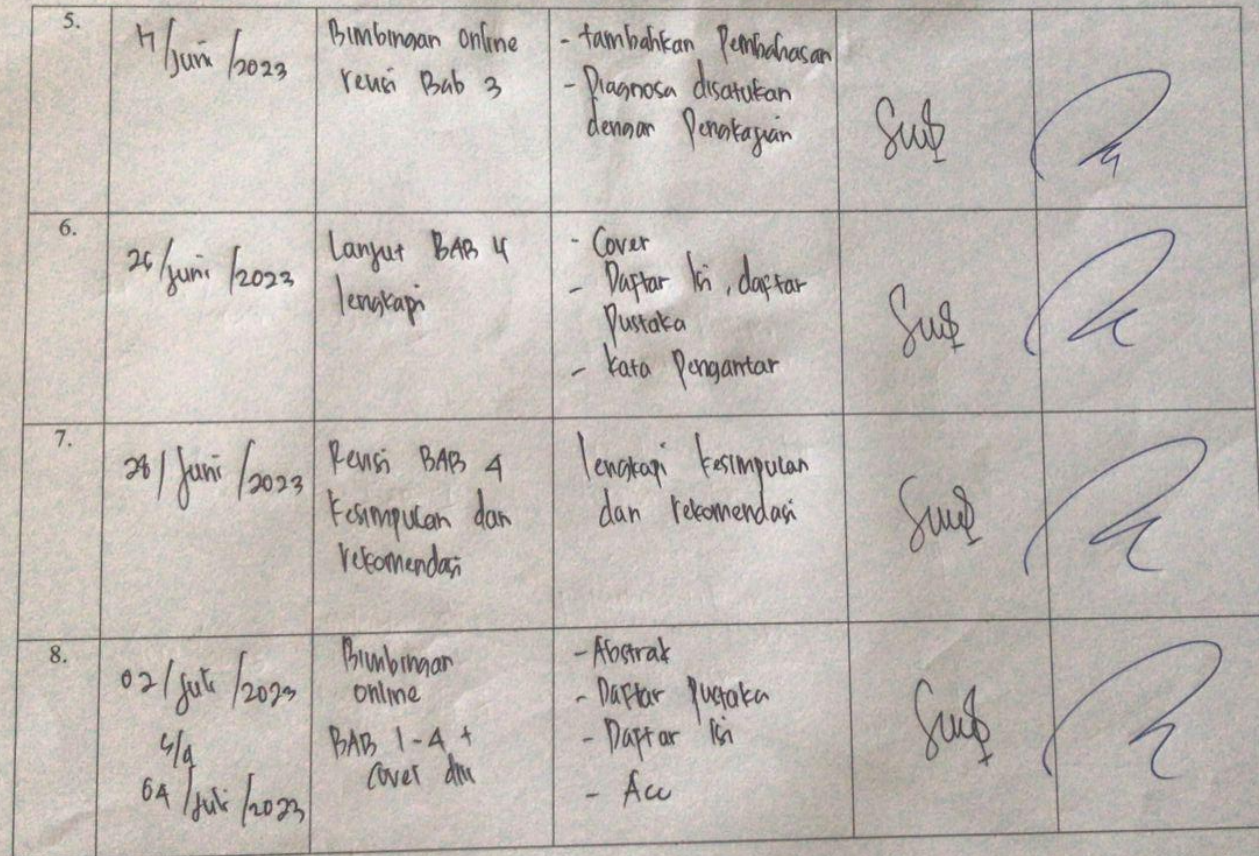 5.
/Juni /2023
Bimbingan online
revisi Bab 3
- tambahkan Pembahasan
- Diagnosa disatukan
dengan Pengkajian
6.
26/Juni /2023
Lanjut BAB 4
lengkapi
- Cover
- Daftar Isi, daftar
Pustaka
- Kata Pengantar
7.
28/Juni /2023
Revisi BAB 4
Kesimpulan dan
rekomendasi
lengkapi kesimpulan
dan rekomendasi
8.
02/Juli /2023
04/Juli /2023
Bimbingan
online
BAB 1-4 +
Cover
- Abstrak
- Daftar Pustaka
- Daftar Isi
- Acc